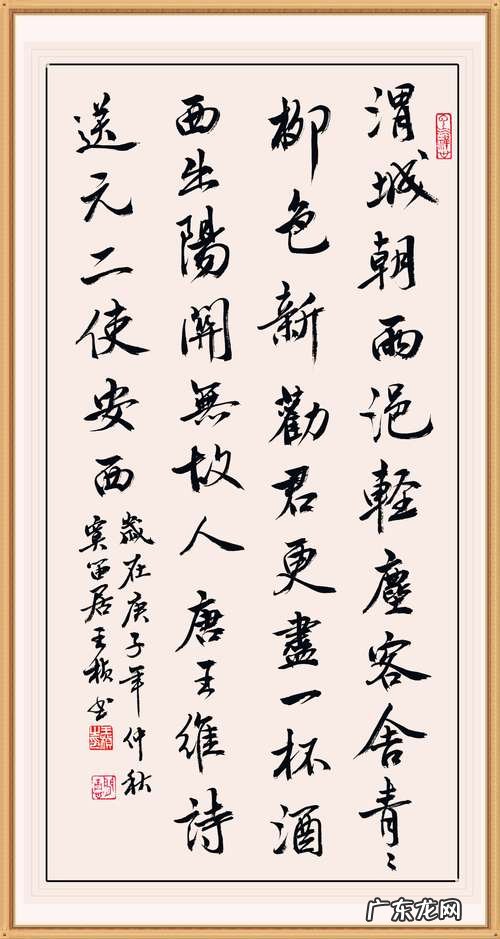 渭城朝雨浥軽塵客舍青〻
柳色新勸君更盡一杯酒
西出陽關無故人 唐王維詩
送元二使安西
歲在庚子年仲秋
居王楨书
广东龙网